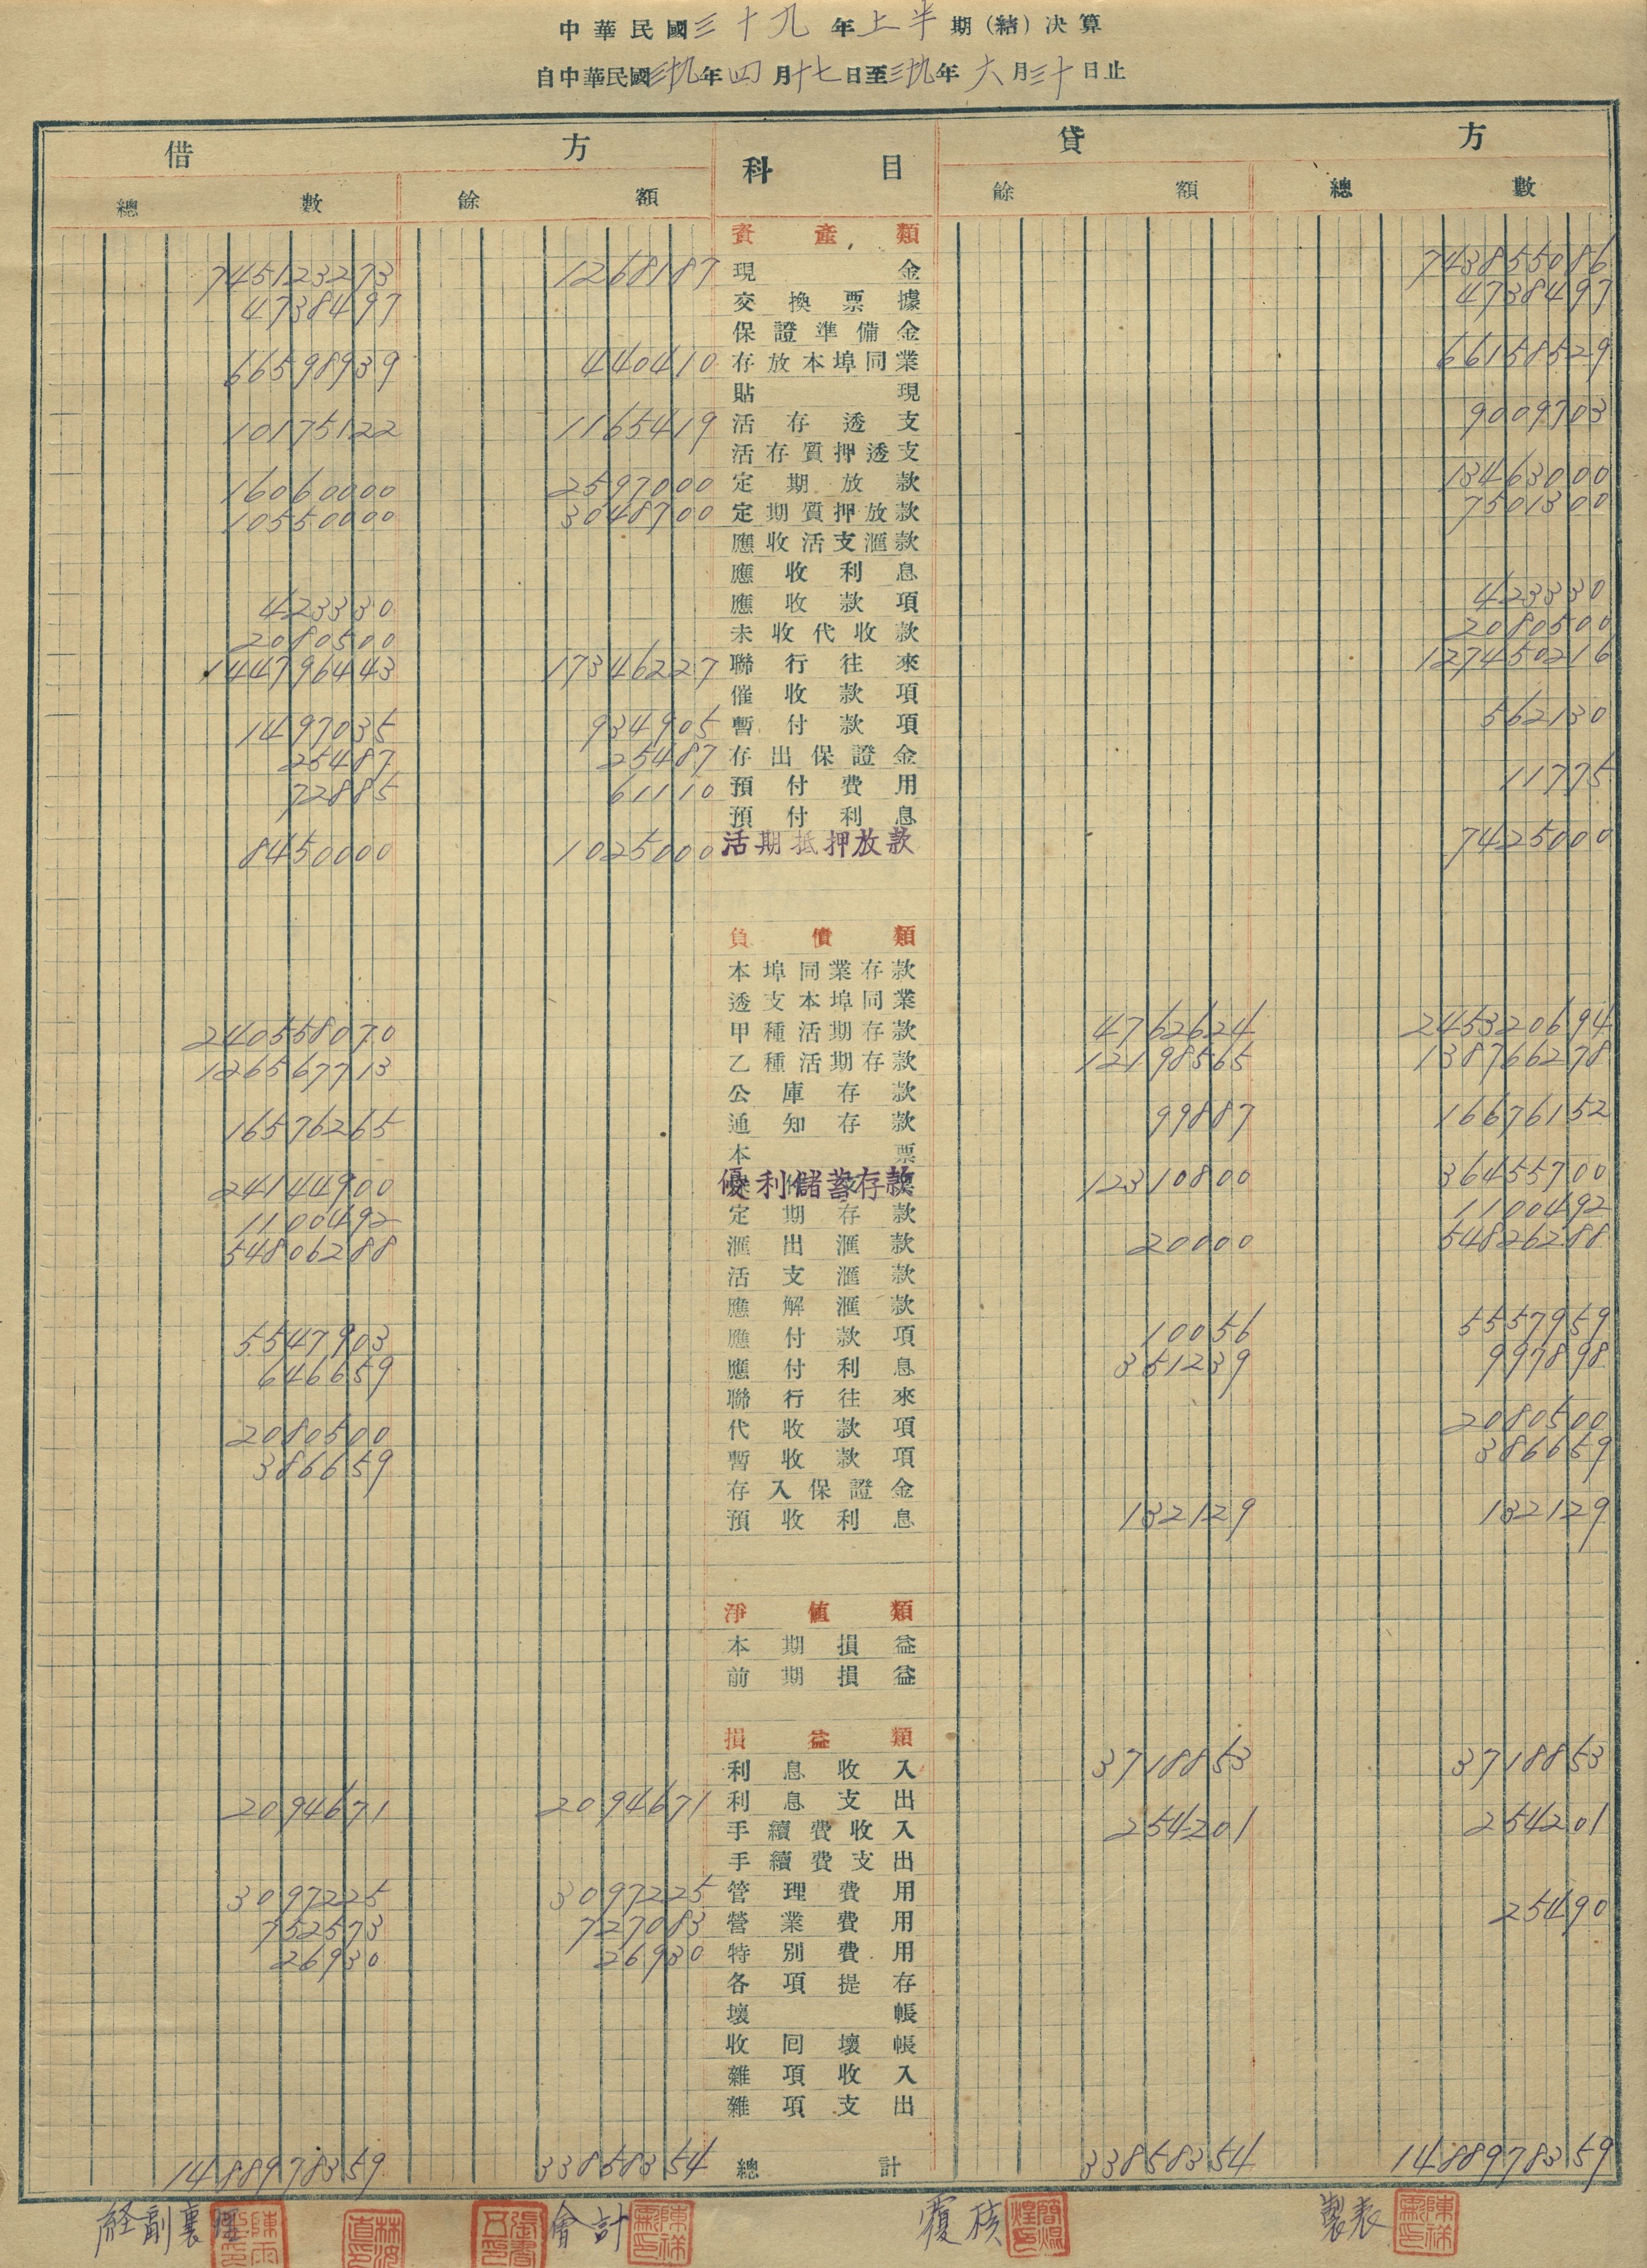 中華民國三十九年上半期(結)決算
自中華民國三十九年四月十七日至三十九年六月三十日止
借方 科目 貸方
總數 餘額 餘額 總數
資產類
745123273 1268187 現金 743855086
4738497 交換票據 4738497
保證準備金
66598939 440410 存放本埠同業 66158529
貼現
10175122 1165419 活存透支 9009703
活存質押透支
16060000 2597000 定期放款 13463000
10550000 3048700 定期質押放款 7501300
應收活支滙款
應收利息
423330 應收款項 423330
2080500 未收代收款 2080500
144796443 17346227 聯行往來 127450216
催收款項
1497035 934905 暫付款項 562130
25487 25487 存出保證金
72885 61110 預付費用 11775
預付利息
8450000 1025000 活期抵押放款 7425000
負債類
本埠同業存款
透支本埠同業
240558070 甲種活期存款 4762624 245320694
126567713 乙種活期存款 12198565 138766278
公庫存款
16576265 通知存款 99887 16676152
本票
24144900 優利儲蓄存款 12310800 36455700
1100492 定期存款 1100492
54806288 滙出滙款 20000 54826288
活支滙款
應解滙款
5547903 應付款項 10056 5557959
646659 應付利息 351239 997898
聯行往來
2080500 代收款項 2080500
386659 暫收款項 386659
存入保證金
預收利息 132129 132129
淨值類
本期損益
前期損益
損益類
利息收入 3718853 3718853
2094671 2094671 利息支出
手續費收入 254201 254201
手續費支出
3097225 3097225 管理費用
752573 727083 營業費用 25490
26930 26930 特別費用
各項提存
壞帳
收回壞帳
雜項收入
雜項支出
1488978359 33858354 總計 33858354 1488978359
経副襄理 會計 覆核 製表